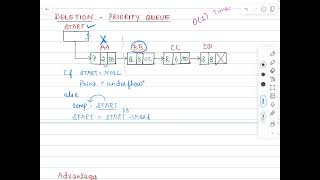 DELETION - PRIORITY QUEUE
O(1) Time
START
X
AA BB CC DD
BB CC
If START = NULL
Print "underflow"
else
temp = START
BB
START = START → next
Advantage